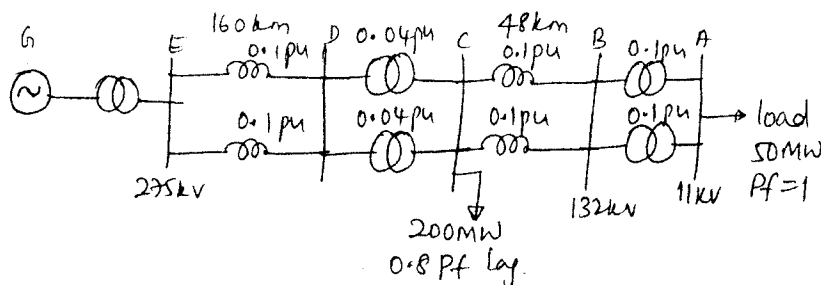 G
E
160km
0.1pu
D
0.04pu
C
48km
0.1pu
B
0.1pu
A
0.1pu
0.04pu
0.1pu
0.1pu
load
50MW
Pf=1
275kv
132kv
11kv
200MW
0.8 Pf lag.